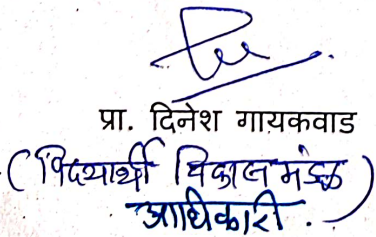 प्रा. दिनेश गायकवाड
(विद्यार्थी विकास मंडळ)
अधिकारी.